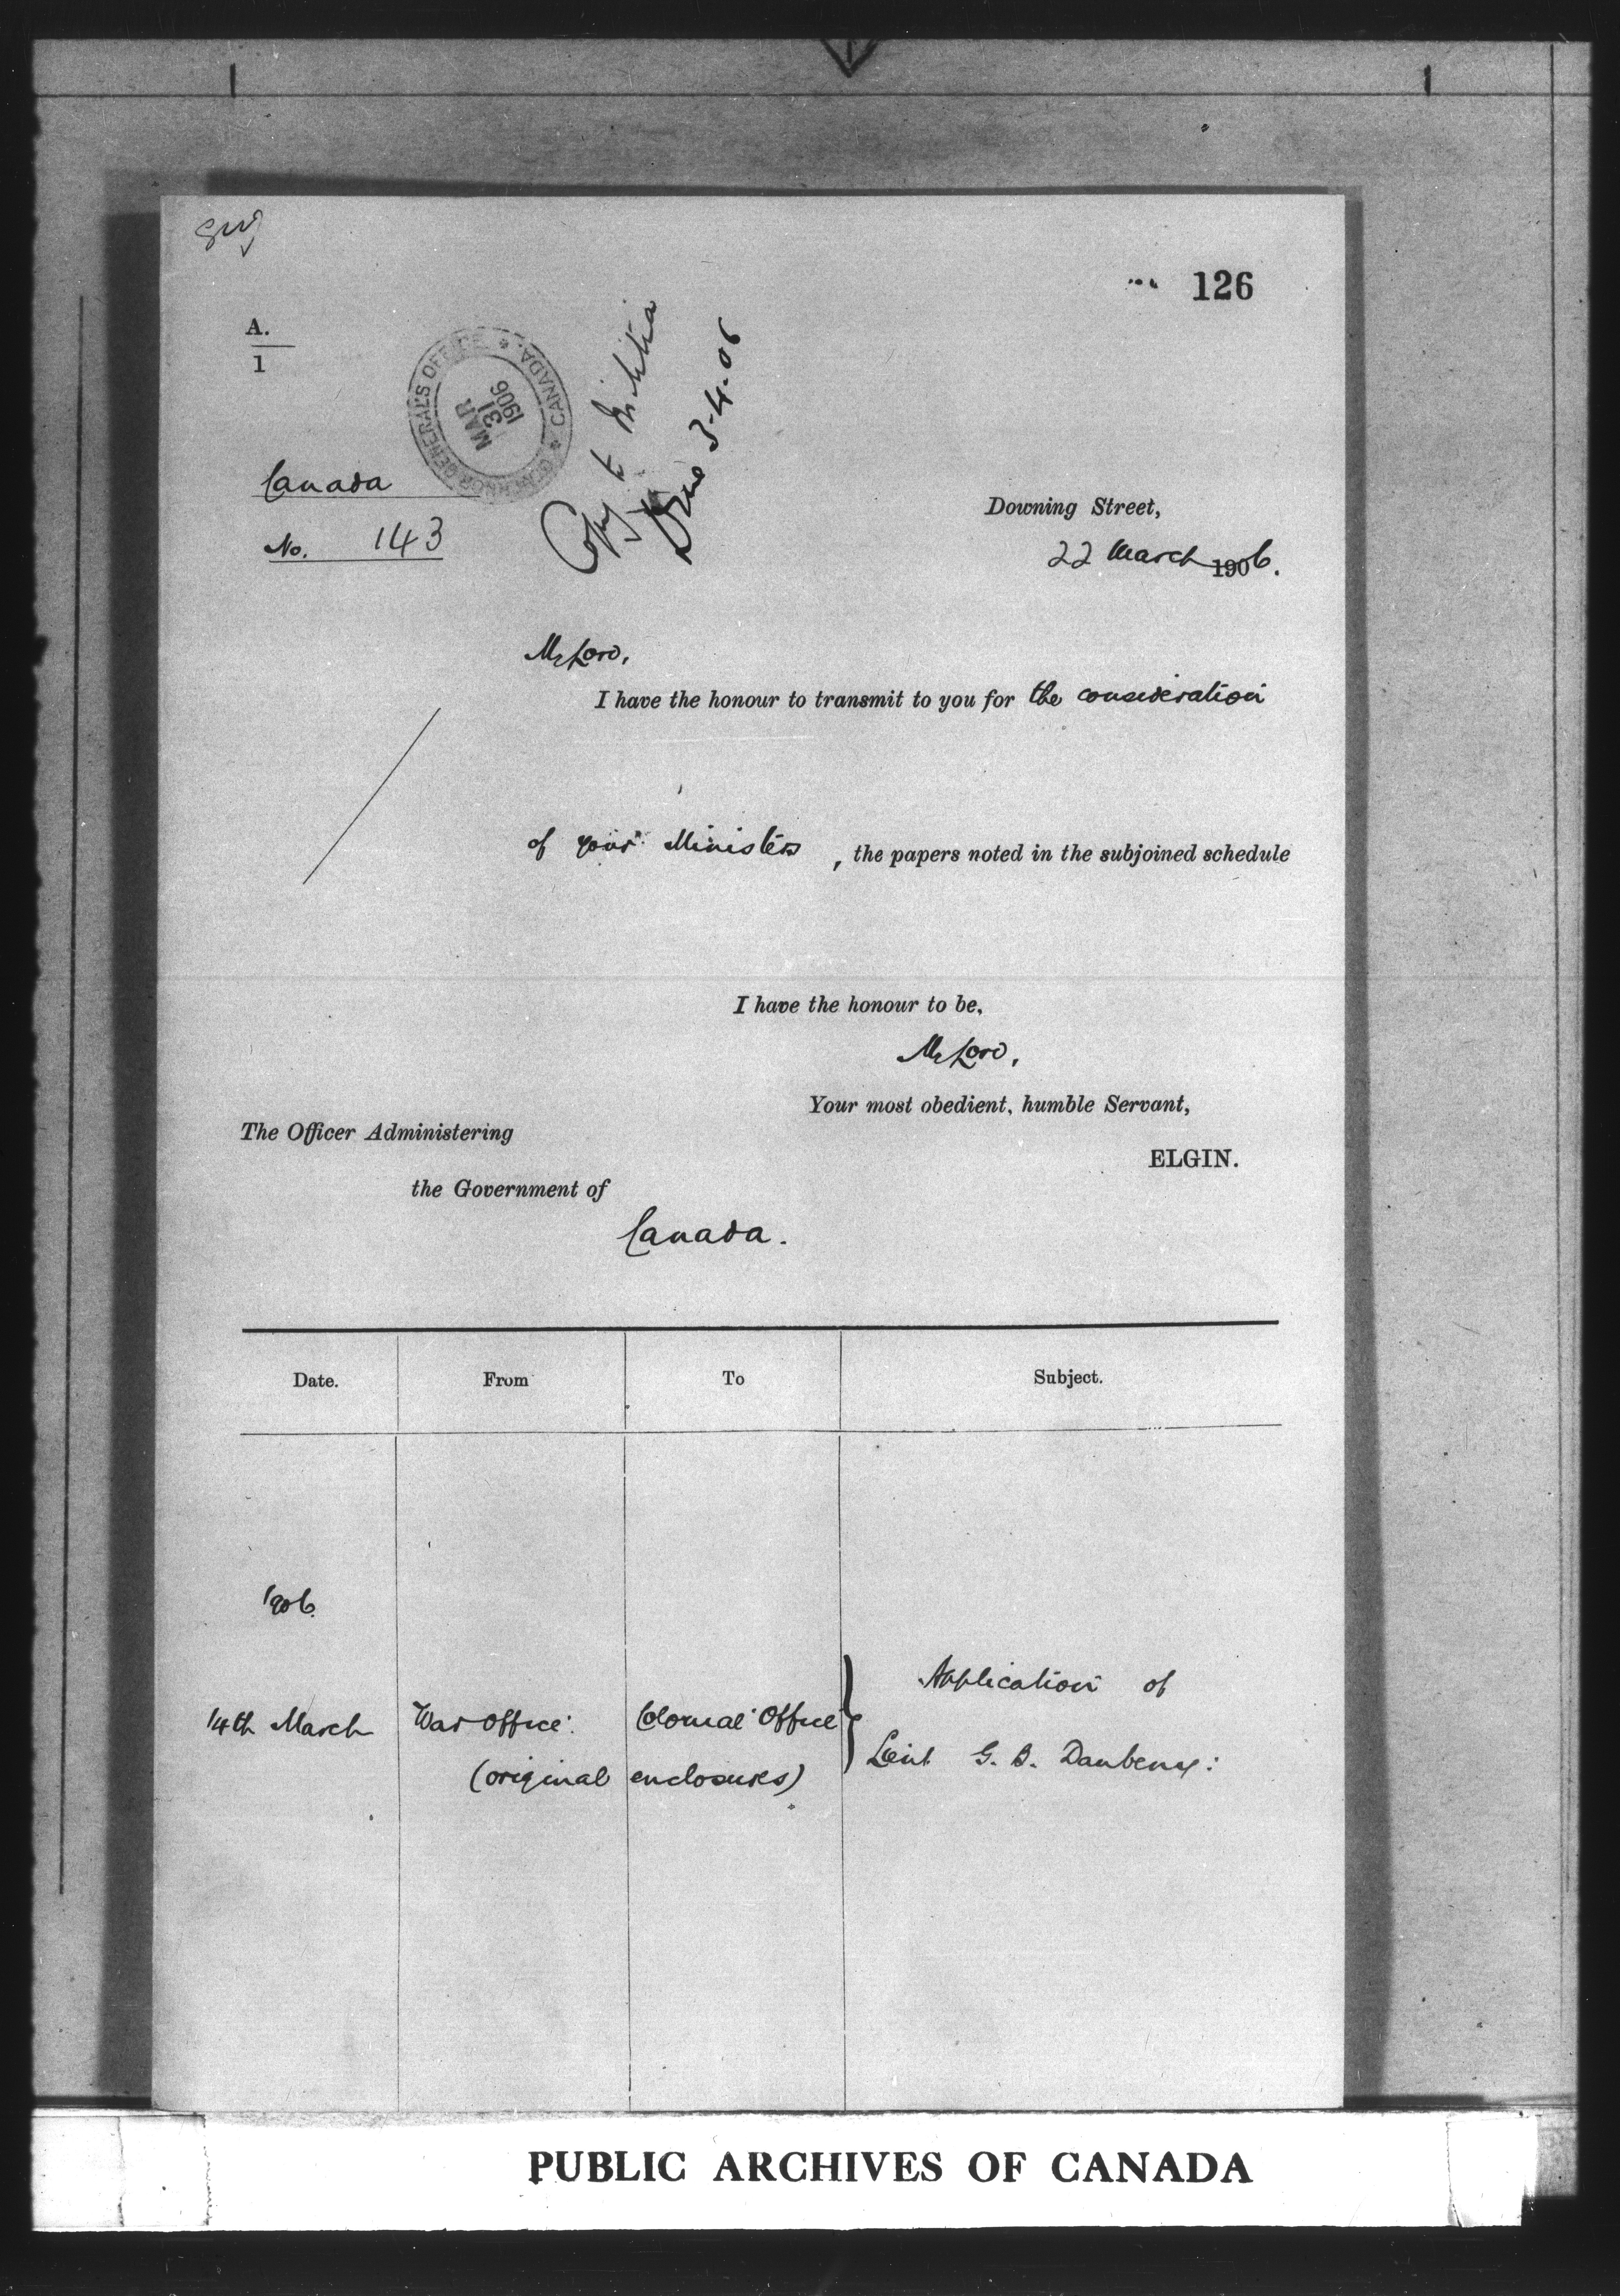 126
A.
1
GOVERNOR GENERAL'S OFFICE * CANADA. *
MAR
31
1906
Copy to Militia
Done 3-4-06
Canada
No. 143
Downing Street,
22 March 1906.
My Lord,
I have the honour to transmit to you for the consideration
of your Ministers, the papers noted in the subjoined schedule
I have the honour to be,
My Lord,
Your most obedient, humble Servant,
ELGIN.
The Officer Administering
the Government of
Canada.
Date. From To Subject.
1906.
14th March War Office. Colonial Office } Application of
(original enclosures) Lieut G. B. Daubeny:
PUBLIC ARCHIVES OF CANADA